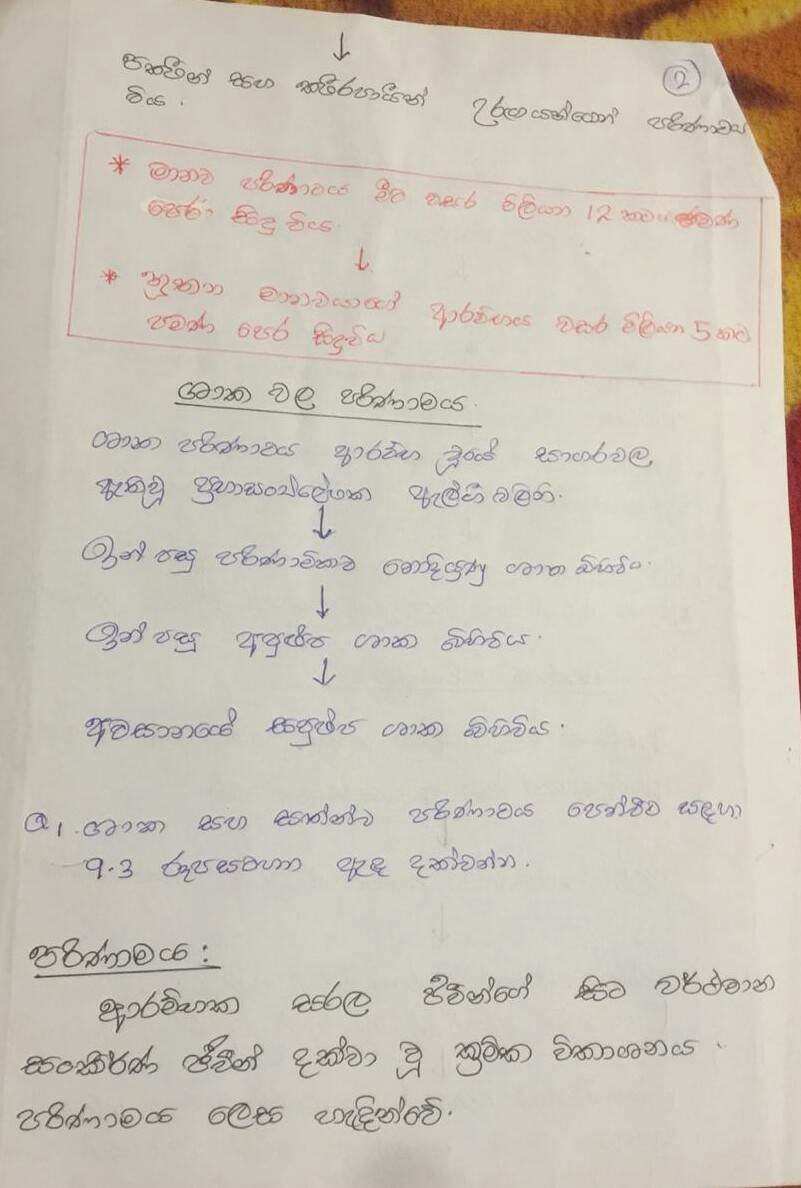 ②
↓
පක්ෂීන් සහ ක්ෂීරපායීන් උරගයන්ගෙන් පරිණාමය
විය.
* මානව පරිණාමය මීට වසර මිලියන 12 කට පමණ
පෙර සිදු විය.
↓
* නූතන මානවයාගේ ආරම්භය වසර මිලියන 5 කට
පමණ පෙර සිදුවිය
ශාක වල පරිණාමය.
ශාක පරිණාමය ආරම්භ වූයේ සාගරවල
ඇතිවූ ප්‍රභාසංශ්ලේශක ඇල්ගී වලිනි.
↓
ඉන් පසු පරිණාමිකව නොදියුණු ශාක බිහිවිය.
↓
ඉන් පසු අපුෂ්ප ශාක බිහිවිය.
↓
අවසානයේ සපුෂ්ප ශාක බිහිවිය.
Q1. ශාක සහ සත්ත්ව පරිණාමය පෙන්වීම සඳහා
9.3 රූපසටහන ඇඳ දක්වන්න.
පරිණාමය :
ආරම්භක සරල ජීවීන්ගේ සිට වර්තමාන
සංකීර්ණ ජීවීන් දක්වා වූ ක්‍රමික විකාශනය
පරිණාමය ලෙස හැඳින්වේ.